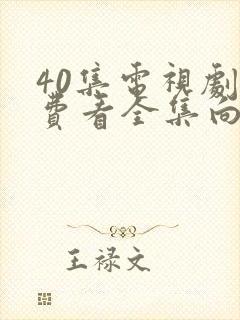 40集電視劇
費看全集向
王禄文